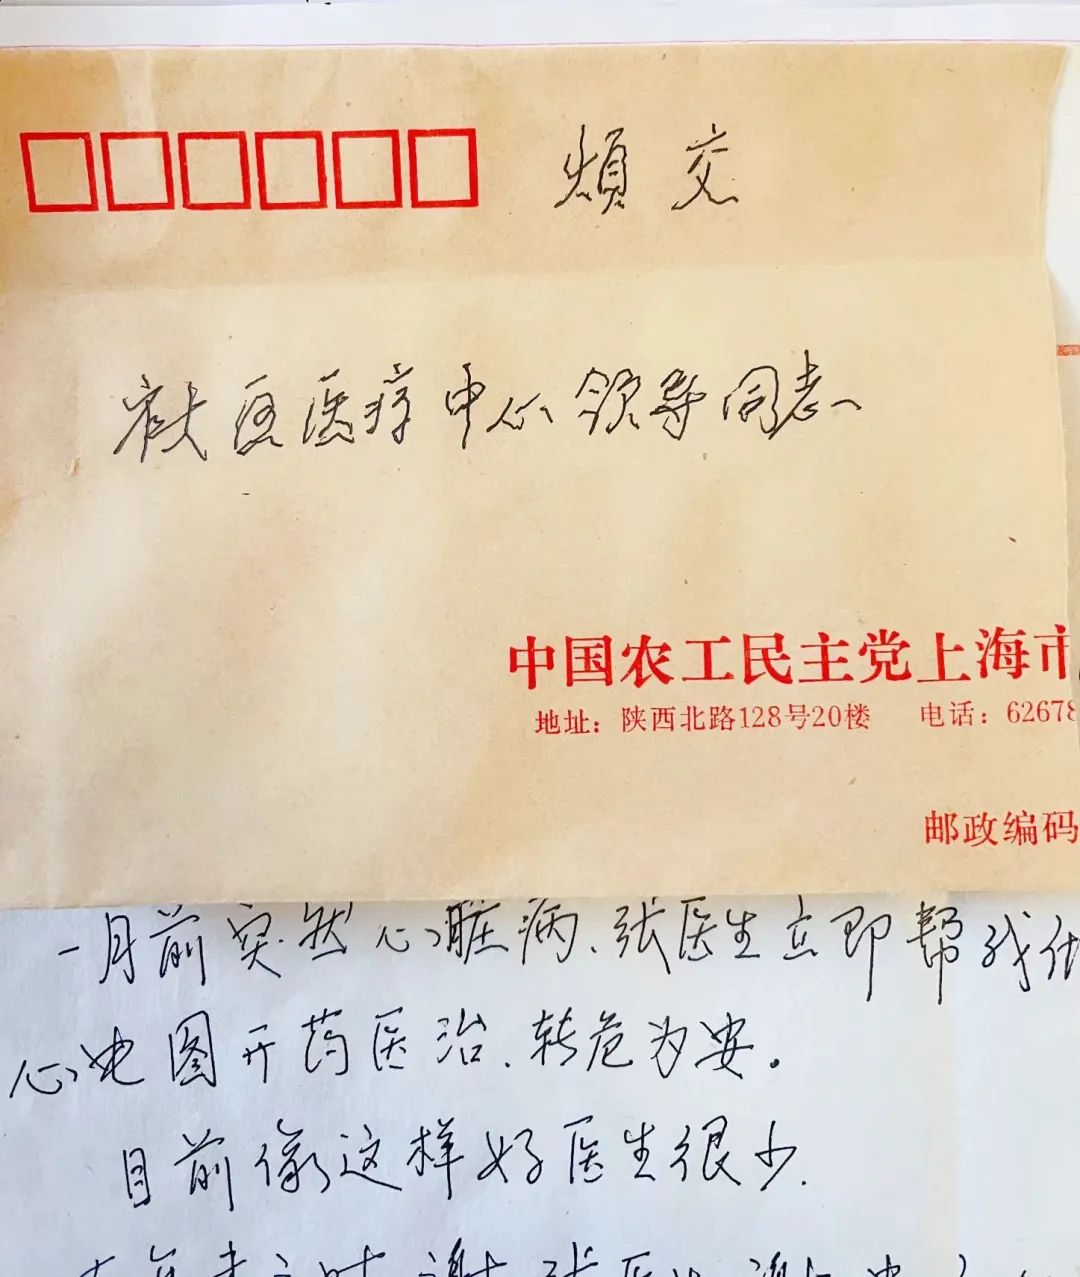 烦交
家医医疗中心领导同志
中国农工民主党上海市
地址：陕西北路128号20楼 电话：62678
邮政编码
一月前突然心脏病、张医生立即帮我做
心电图开药医治、转危为安。
目前像这样好医生很少.
谢张医生